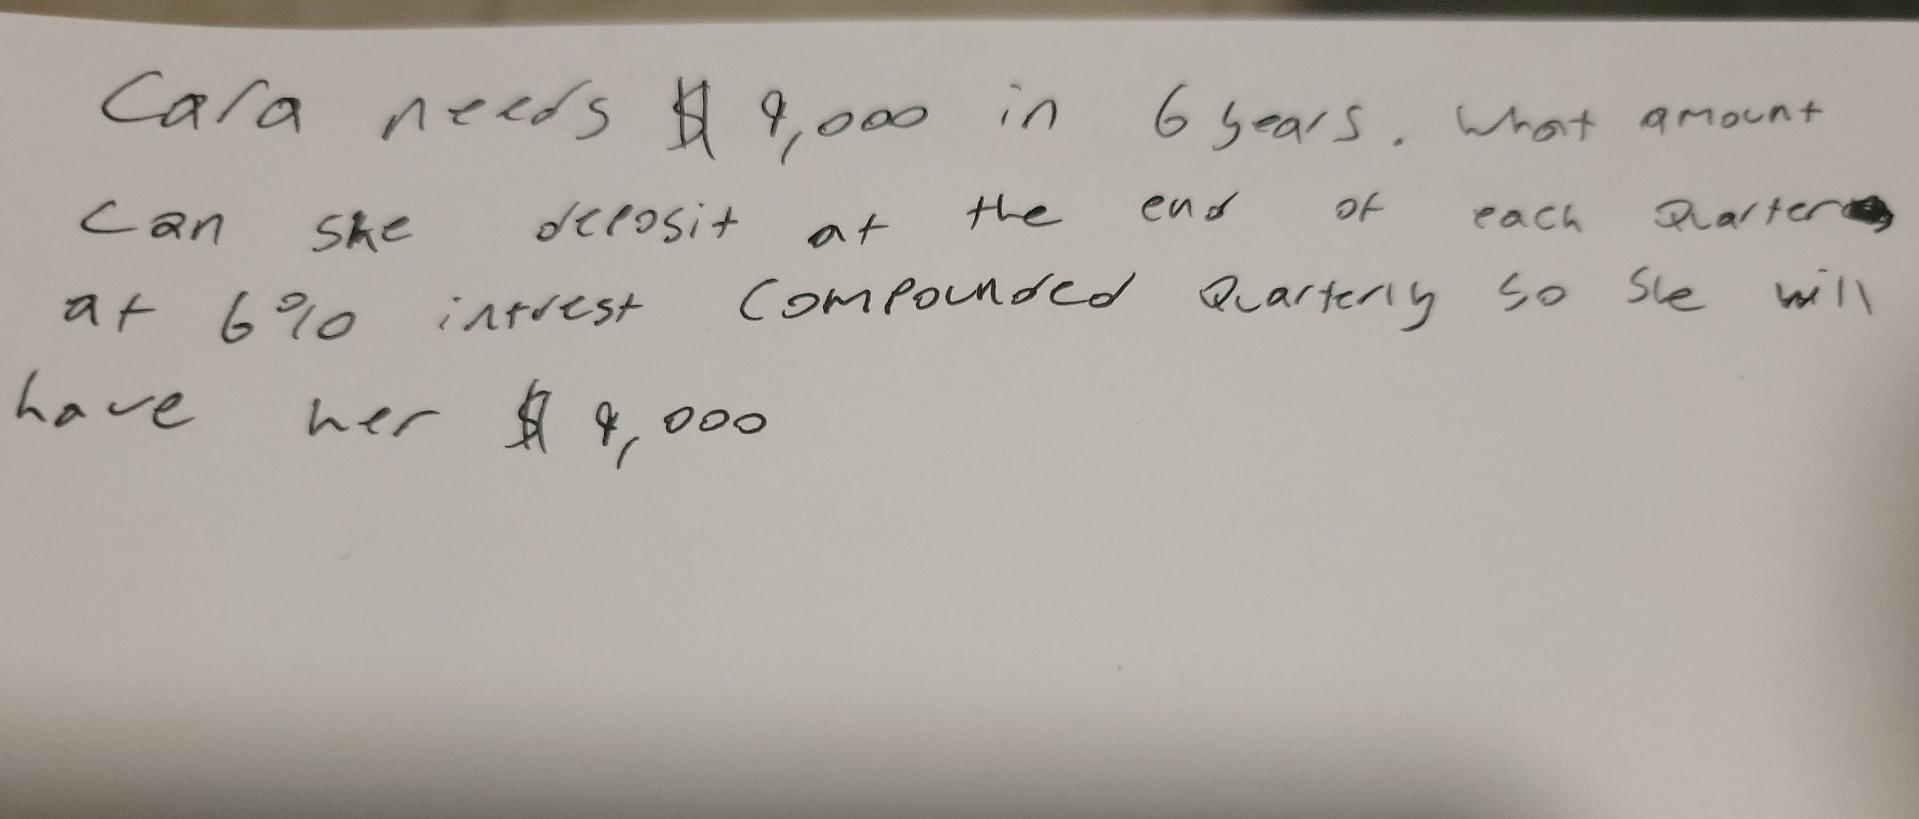 Cara needs $ 9,000 in 6 years. What amount
can she deposit at the end of each Quarter
at 6% intrest compounded Quarterly so she will
have her $ 9,000